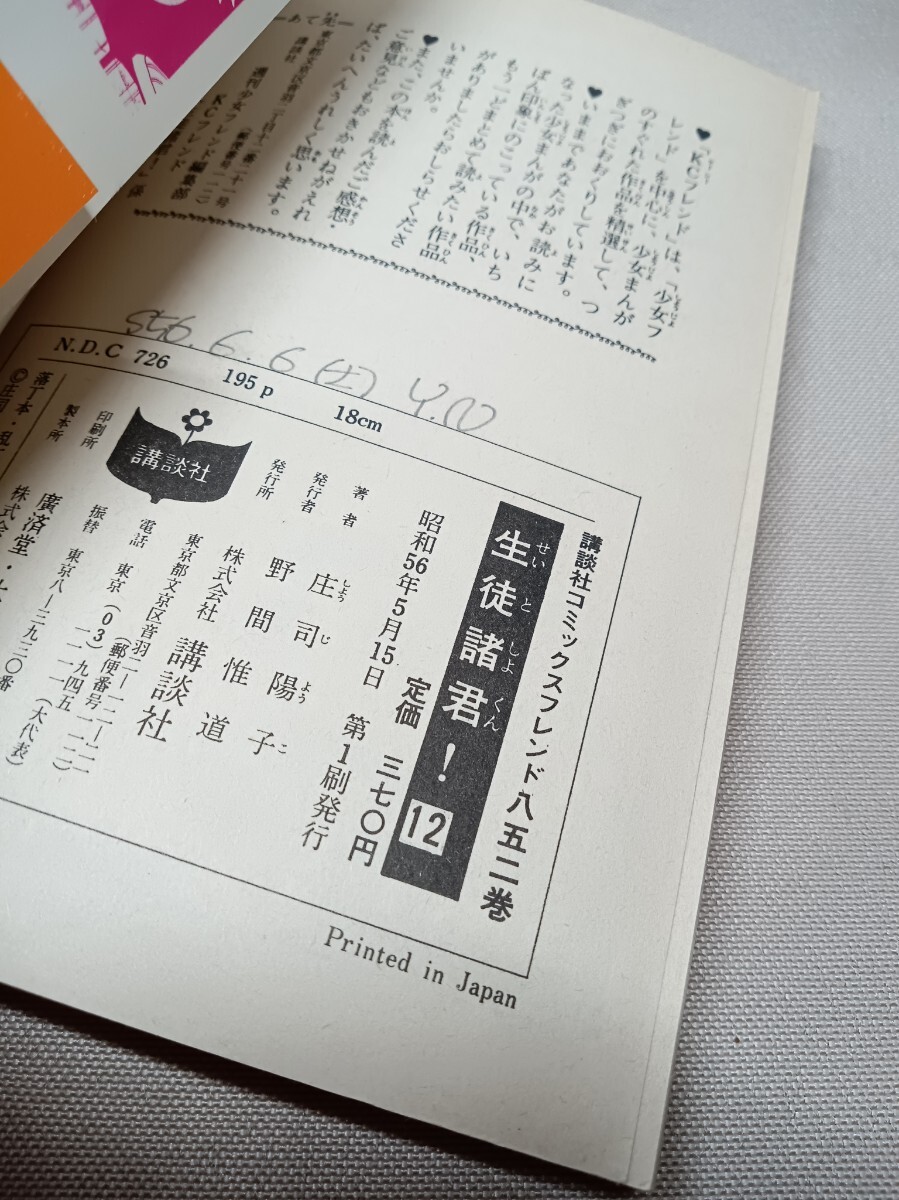 ♥「KCフレンド」は、「少女フ
レンド」を中心に、少女まんが
のすぐれた作品を精選して、つ
ぎつぎにおおくりしています。
♥いままであなたがお読みに
なった少女まんがの中で、いち
ばん印象にのこっている作品、
もう一どまとめて読みたい作品
がありましたらおしらせくださ
いませんか。
♥また、この本を読んだご感想・
ご意見などもおきかせねがえれ
ば、たいへんうれしく思います。
―あて先―
東京都文京区音羽二丁目十二番二十一号
講談社
週刊少女フレンド
KCフレンド編集部
係
S56.6.6(土) Y.N
N.D.C 726 195p 18cm
講談社コミックスフレンド八五二巻
生徒諸君! 12
せいとしよくん
定価 三七〇円
昭和56年5月15日 第1刷発行
著者 庄司陽子
しようじようこ
発行者 野間惟道
発行所 株式会社 講談社
東京都文京区音羽二―一二―二一
(郵便番号一一二)
電話 東京(03)九四五―一一一一(大代表)
振替 東京八―三九三〇番
講談社
印刷所
製本所
廣済堂・
株式会
落丁本・乱
©庄司
Printed in Japan